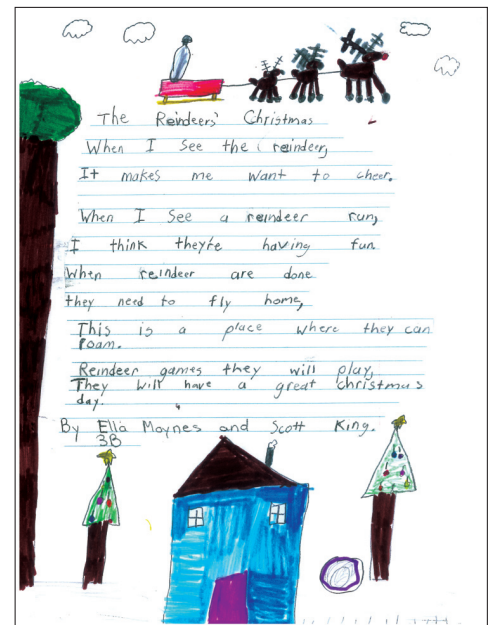 The Reindeers' Christmas
When I see the reindeer,
It makes me want to cheer.
When I see a reindeer run,
I think they're having fun
When reindeer are done
they need to fly home,
This is a place where they can
roam.
Reindeer games they will play,
They will have a great christmas
day.
By Ella Moynes and Scott King.
3B